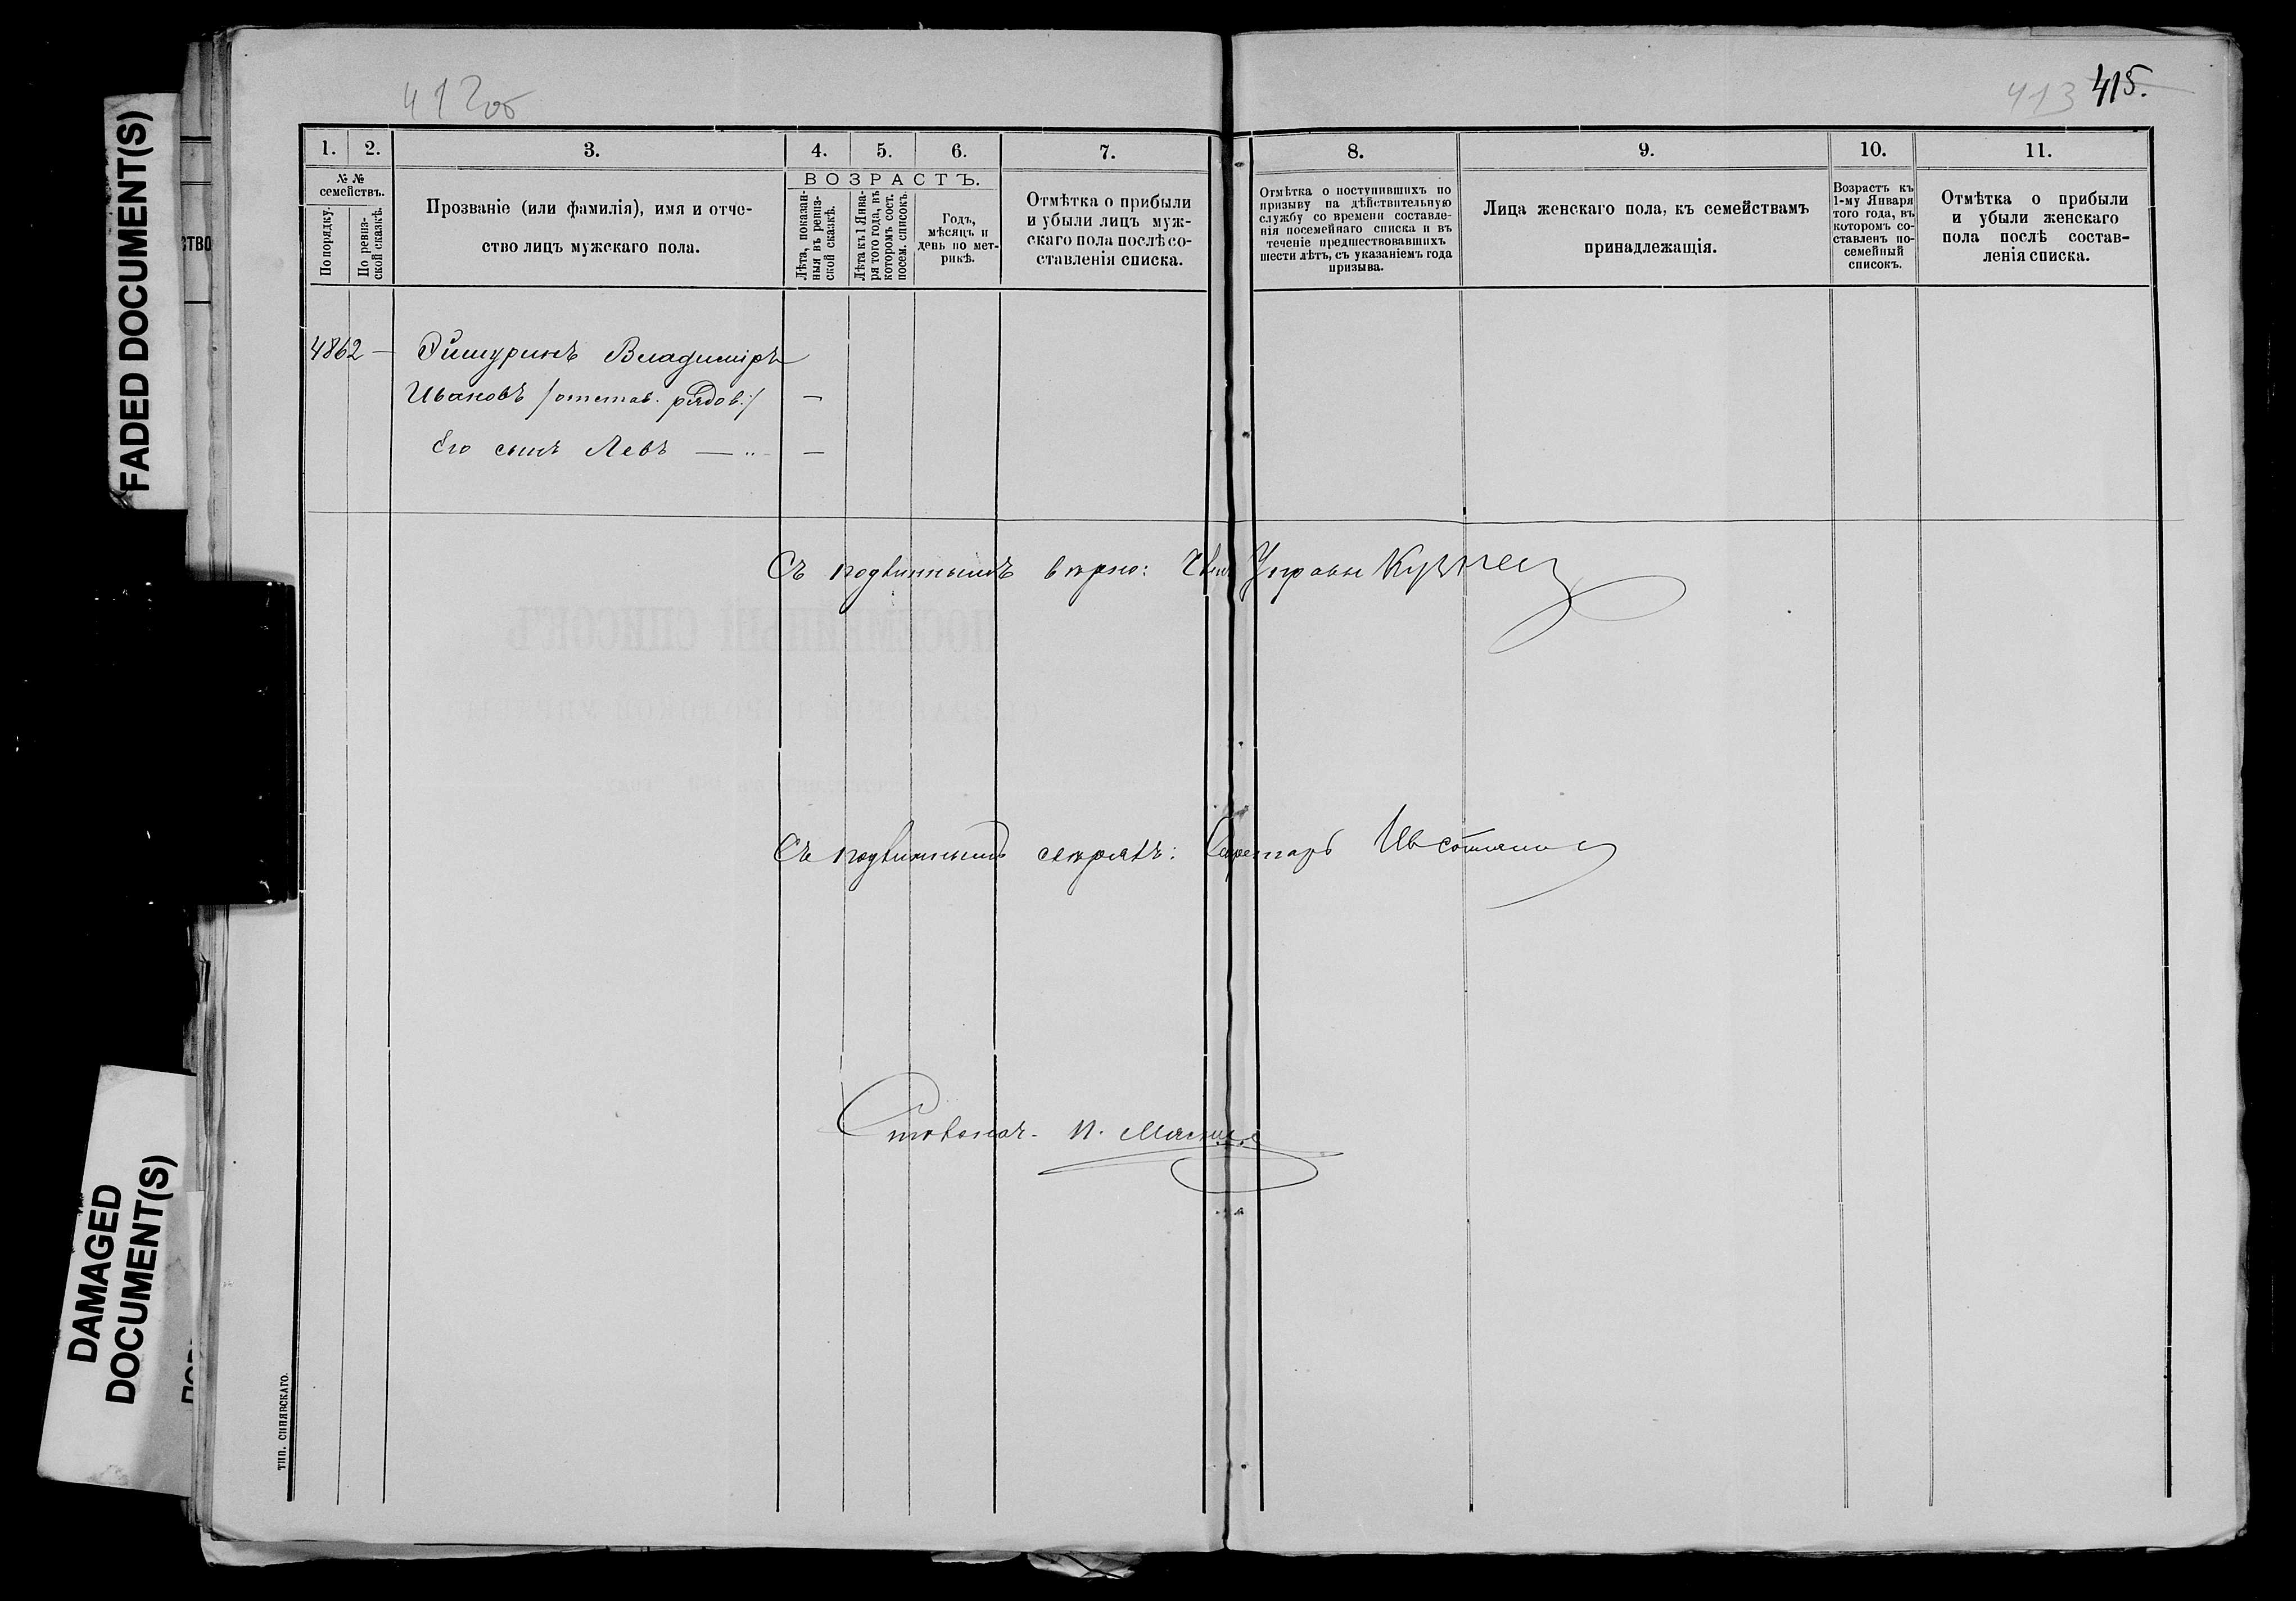 FADED DOCUMENT(S)
DAMAGED
DOCUMENT(S)
СТВО
412об
413 415.
1. 2. 3. 4. 5. 6. 7. 8. 9. 10. 11.
№ №
семействъ.
По порядку.
По ревиз-
ской сказкѣ.
Прозваніе (или фамилія), имя и отче-
ство лицъ мужскаго пола.
ВОЗРАСТЪ.
Лѣта, показан-
ныя въ ревиз-
ской сказкѣ.
Лѣта къ 1 Янва-
ря того года, въ
которомъ сост.
посем. списокъ.
Годъ,
мѣсяцъ и
день по мет-
рикѣ.
Отмѣтка о прибыли
и убыли лицъ муж-
скаго пола послѣ со-
ставленія списка.
Отмѣтка о поступившихъ по
призыву на дѣйствительную
службу со времени составле-
нія посемейнаго списка и въ
теченіе предшествовавшихъ
шести лѣтъ, съ указаніемъ года
призыва.
Лица женскаго пола, къ семействамъ
принадлежащія.
Возрастъ къ
1-му Января
того года, въ
которомъ со-
ставленъ по-
семейный
списокъ.
Отмѣтка о прибыли
и убыли женскаго
пола послѣ состав-
ленія списка.
4862 — Владиміръ
Ивановъ /отстав. рядов./ —
Его сынъ Левъ — „ —
Съ подлиннымъ вѣрно: Чл. Управы Кузнец
Съ подлиннымъ свѣрялъ: Секретарь
Столонач. П.
ТИП. СИНЯВСКАГО.